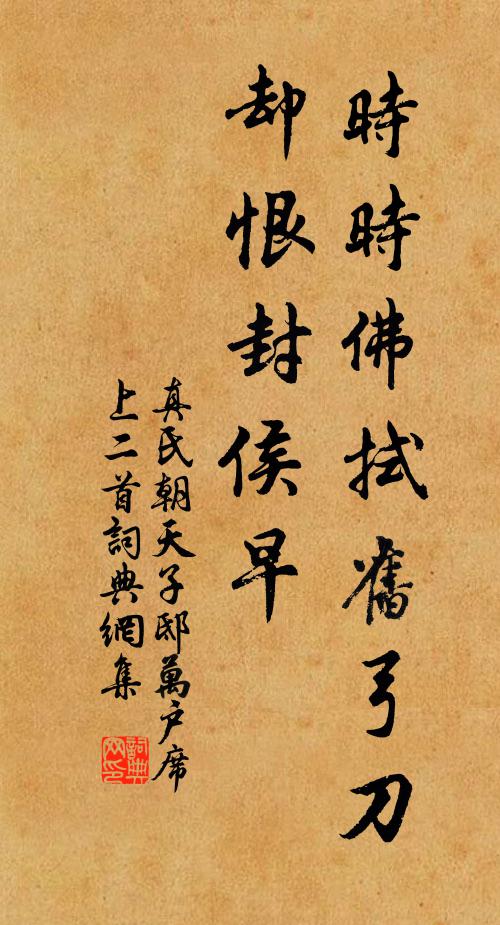 時時佛拭舊弓刀
却恨封侯早
真氏朝天子邸萬戶席
上二首詞典網集
詞典
网印